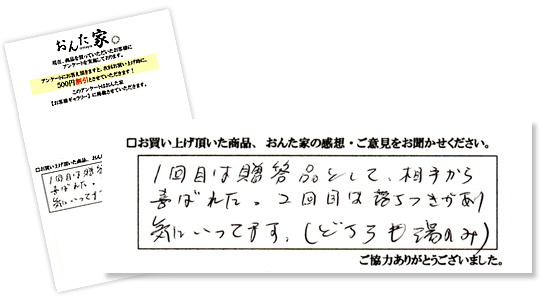 おんた家
現在、商品を買っていただいたお客様に
アンケートを実施しております。
アンケートにお答え頂きますと、次回お買い上げ時に、
500円割引とさせていただきます!
このアンケートはおんた家
【お客様ギャラリー】に掲載させていただきます。
□お買い上げ頂いた商品、おん
1回目は贈答
喜ばれた。
気にいってます
□お買い上げ頂いた商品、おんた家の感想・ご意見をお聞かせください。
1回目は贈答品として、相手から
喜ばれた。2回目は落ちつきがあり
気にいってます。(どちらも湯のみ)
ご協力ありがとうございました。